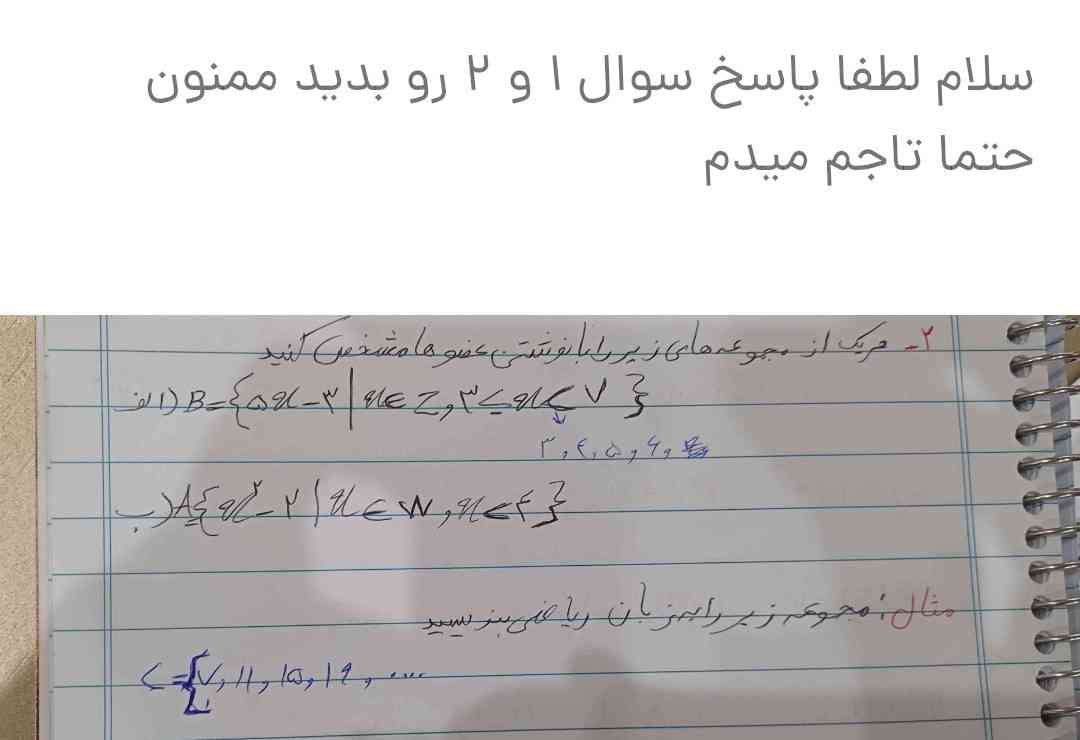 سلام لطفا پاسخ سوال ۱ و ۲ رو بدید ممنون
حتما تاجم میدم
۲- هریک از مجموعه های زیر را با نوشتن عضو ها مشخص کنید
الف) B={۵x-۳ | x∈Z, ۳≤x<۷}
۳,۴,۵,۶,
ب) A={x²-۲ | x∈W, x<۴}
مثال: مجموعه زیر را به زبان ریاضی بنویسید
C={۷, ۱۱, ۱۵, ۱۹, ....